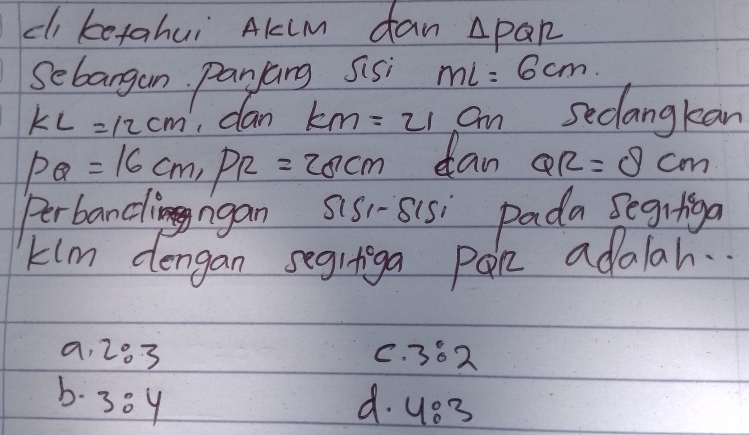 di ketahui ΔKLM dan ΔPQR
Sebangun. Panjang sisi ML = 6 cm.
KL = 12 cm, dan KM = 21 cm sedangkan
PQ = 16 cm, PR = 28 cm dan QR = 8 cm
Perbandingngan sisi-sisi pada segitiga
klm dengan segitiga PQR adalah...
a. 2:3 c. 3:2
b. 3:4 d. 4:3